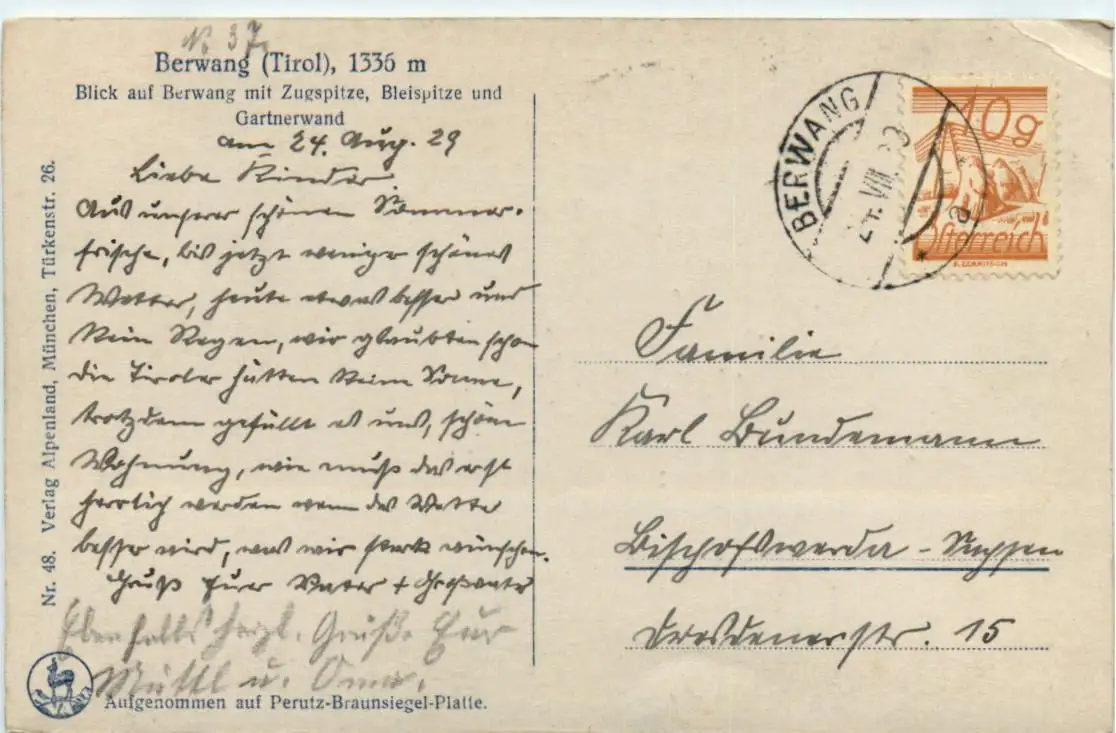 No 37.
Berwang (Tirol), 1336 m
Blick auf Berwang mit Zugspitze, Bleispitze und
Gartnerwand
am 24. Aug. 29
Liebe Kinder
Aus unserer schönen Sommer-
frische, bis jetzt weniger schönes
Wetter, heute etwas besser und
kein Regen, wir glaubten schon
die Tiroler hätten keine Sonne,
trotzdem gefällt es uns, schöne
Wohnung, wie muß das erst
herrlich werden wenn das Wetter
besser wird, was wir stark wünschen.
Gruß Eurer Vater + Großvater
Ebenfalls herzl. Grüße Eur
Muttl u. Oma.
Aufgenommen auf Perutz-Braunsiegel-Platte.
Nr. 48. Verlag Alpenland, München, Türkenstr. 26.
BERWANG
24. VIII.
a
10g
Österreich
Familie
Karl Bundemann
Bischofswerda - Sachsen
Dresdenerstr. 15